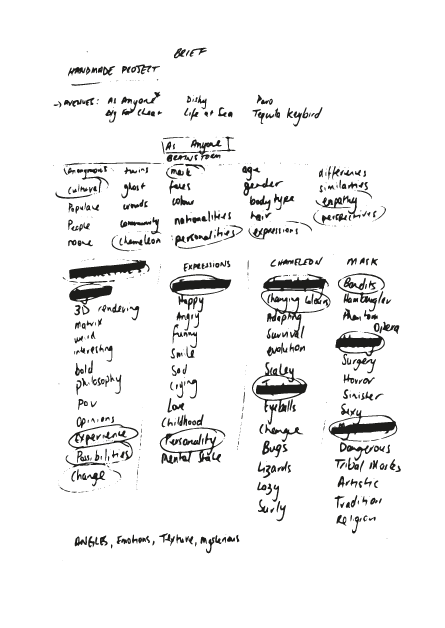 BRIEF
HANDMADE PROJECT
AVENUES: As Anyone* Dishy Puro
Dig For Cheat Life at Sea Tequila Keybird
As Anyone
BRAINSTORM
Anonymous twins mask age differences
Cultural ghost faces gender similarities
Populace crowds colour body type empathy
People community nationalities hair perspectives
none Chameleon personalities expressions
EXPRESSIONS CHAMELEON MASK
Bandits
3D rendering Happy Changing Colours Hamburglar
Matrix Angry Adapting Phantom Opera
weird Funny Survival
interesting Smile evolution Surgery
bold Sad Scaley Horror
philosophy Crying Sinister
POV Love Eyeballs Sexy
Opinions Childhood Change
Experience Personality Bugs Dangerous
Possibilities Mental State Lizards Tribal Masks
Change Lazy Artistic
Surly Tradition
Religion
ANGLES, Emotions, Texture, mysterious